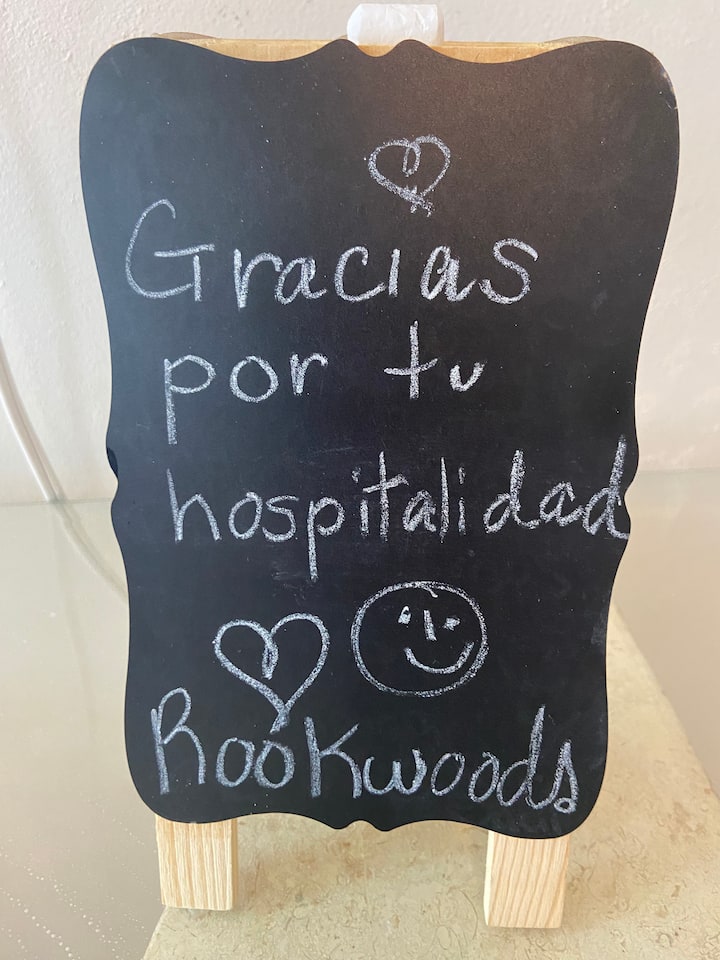 Gracias
por tu
hospitalidad
Rookwoods